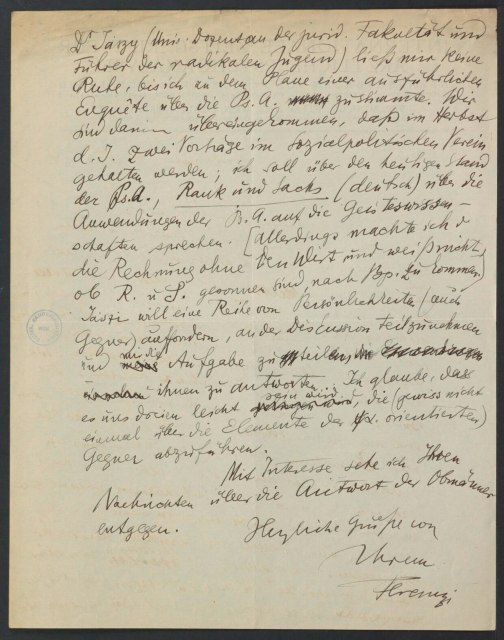 Dr Jászy (Univ. Dozent an der jurid. Fakultät und
Führer der radikalen Jugend) ließ mir keine
Ruhe, bis ich zu dem Plane einer ausführlichen
Enquête über die Ps.A. zustimmte. Wir
sind dann übereingekommen, daß im Herbst
d. J. zwei Vorträge im Sozialpolitischen Verein
gehalten werden; ich soll über den heutigen Stand
der Ps.A., Rank und Sachs (deutsch) über die
Anwendungen der Ps.A. auf die Geisteswissen-
schaften sprechen. [Allerdings machte ich
die Rechnung ohne den Wirt und weiß nicht,
ob R. u. S. gesonnen sind, nach Bp. zu kommen.)
Jászi will eine Reihe von Persönlichkeiten (auch
Gegner) auffordern, an der Discussion teilzunehmen
und mir die Aufgabe zu
ihnen zu antworten. Ich glaube, daß
es uns dreien leicht sein wird, die (gewiss nicht
einmal über die Elemente der orientierten)
Gegner abzuführen.
Mit Interesse sehe ich Ihren
Nachrichten über die Antwort der Obmänner
entgegen.
Herzliche Grüße von
Ihrem
Ferenczi